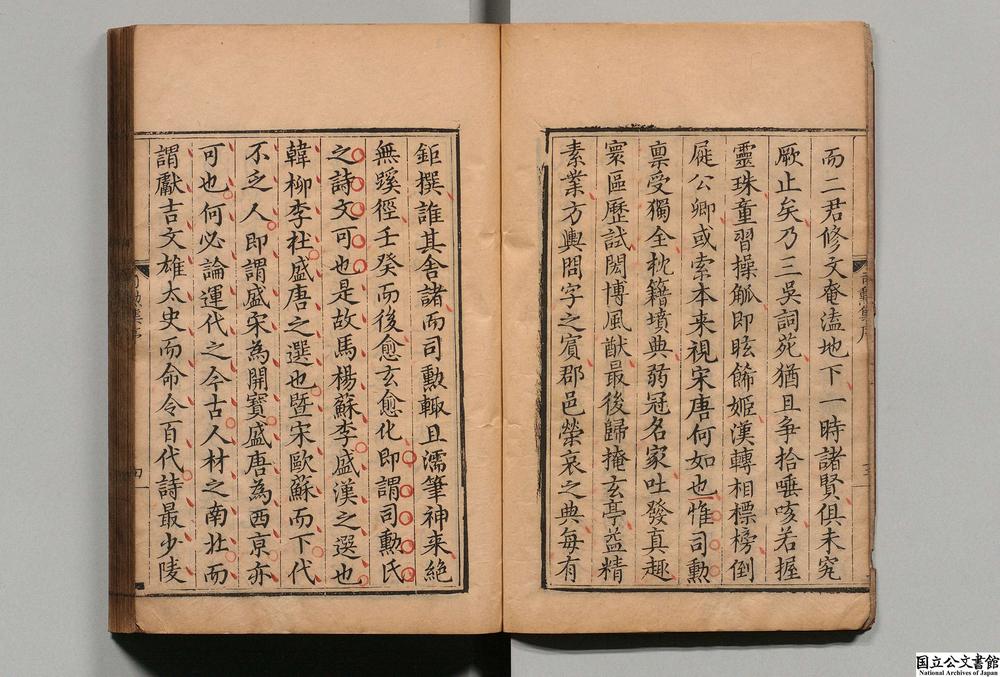 而二君修文奄溘地下一時諸賢俱未究
厥止矣乃三吳詞苑猶且争拾唾咳若握
靈珠童習操觚即眩飾姬漢轉相標榜倒
屣公卿或索本来視宋唐何如也惟司勲
禀受獨全枕籍墳典弱冠名家吐發真趣
寰區歷試閎博風猷最後歸掩玄亭益精
素業方輿問字之賓郡邑榮哀之典每有
鉅撰誰其舎諸而司勲輙且濡筆神来絶
無蹊徑壬癸而後愈玄愈化即謂司勲氏
之詩文可也是故馬楊蘇李盛漢之選也
韓柳李杜盛唐之選也暨宋歐蘇而下代
不乏人即謂盛宋為開寶盛唐為西亰亦
可也何必論運代之今古人材之南北而
謂獻吉文雄太史而命令百代詩最少陵
司勲集序
三
四
国立公文書館
National Archives of Japan